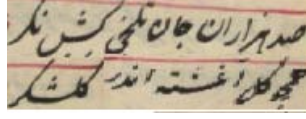 صد هزاران جان تلخی کش نگر
همچو گل آغشته اندر گلشکر